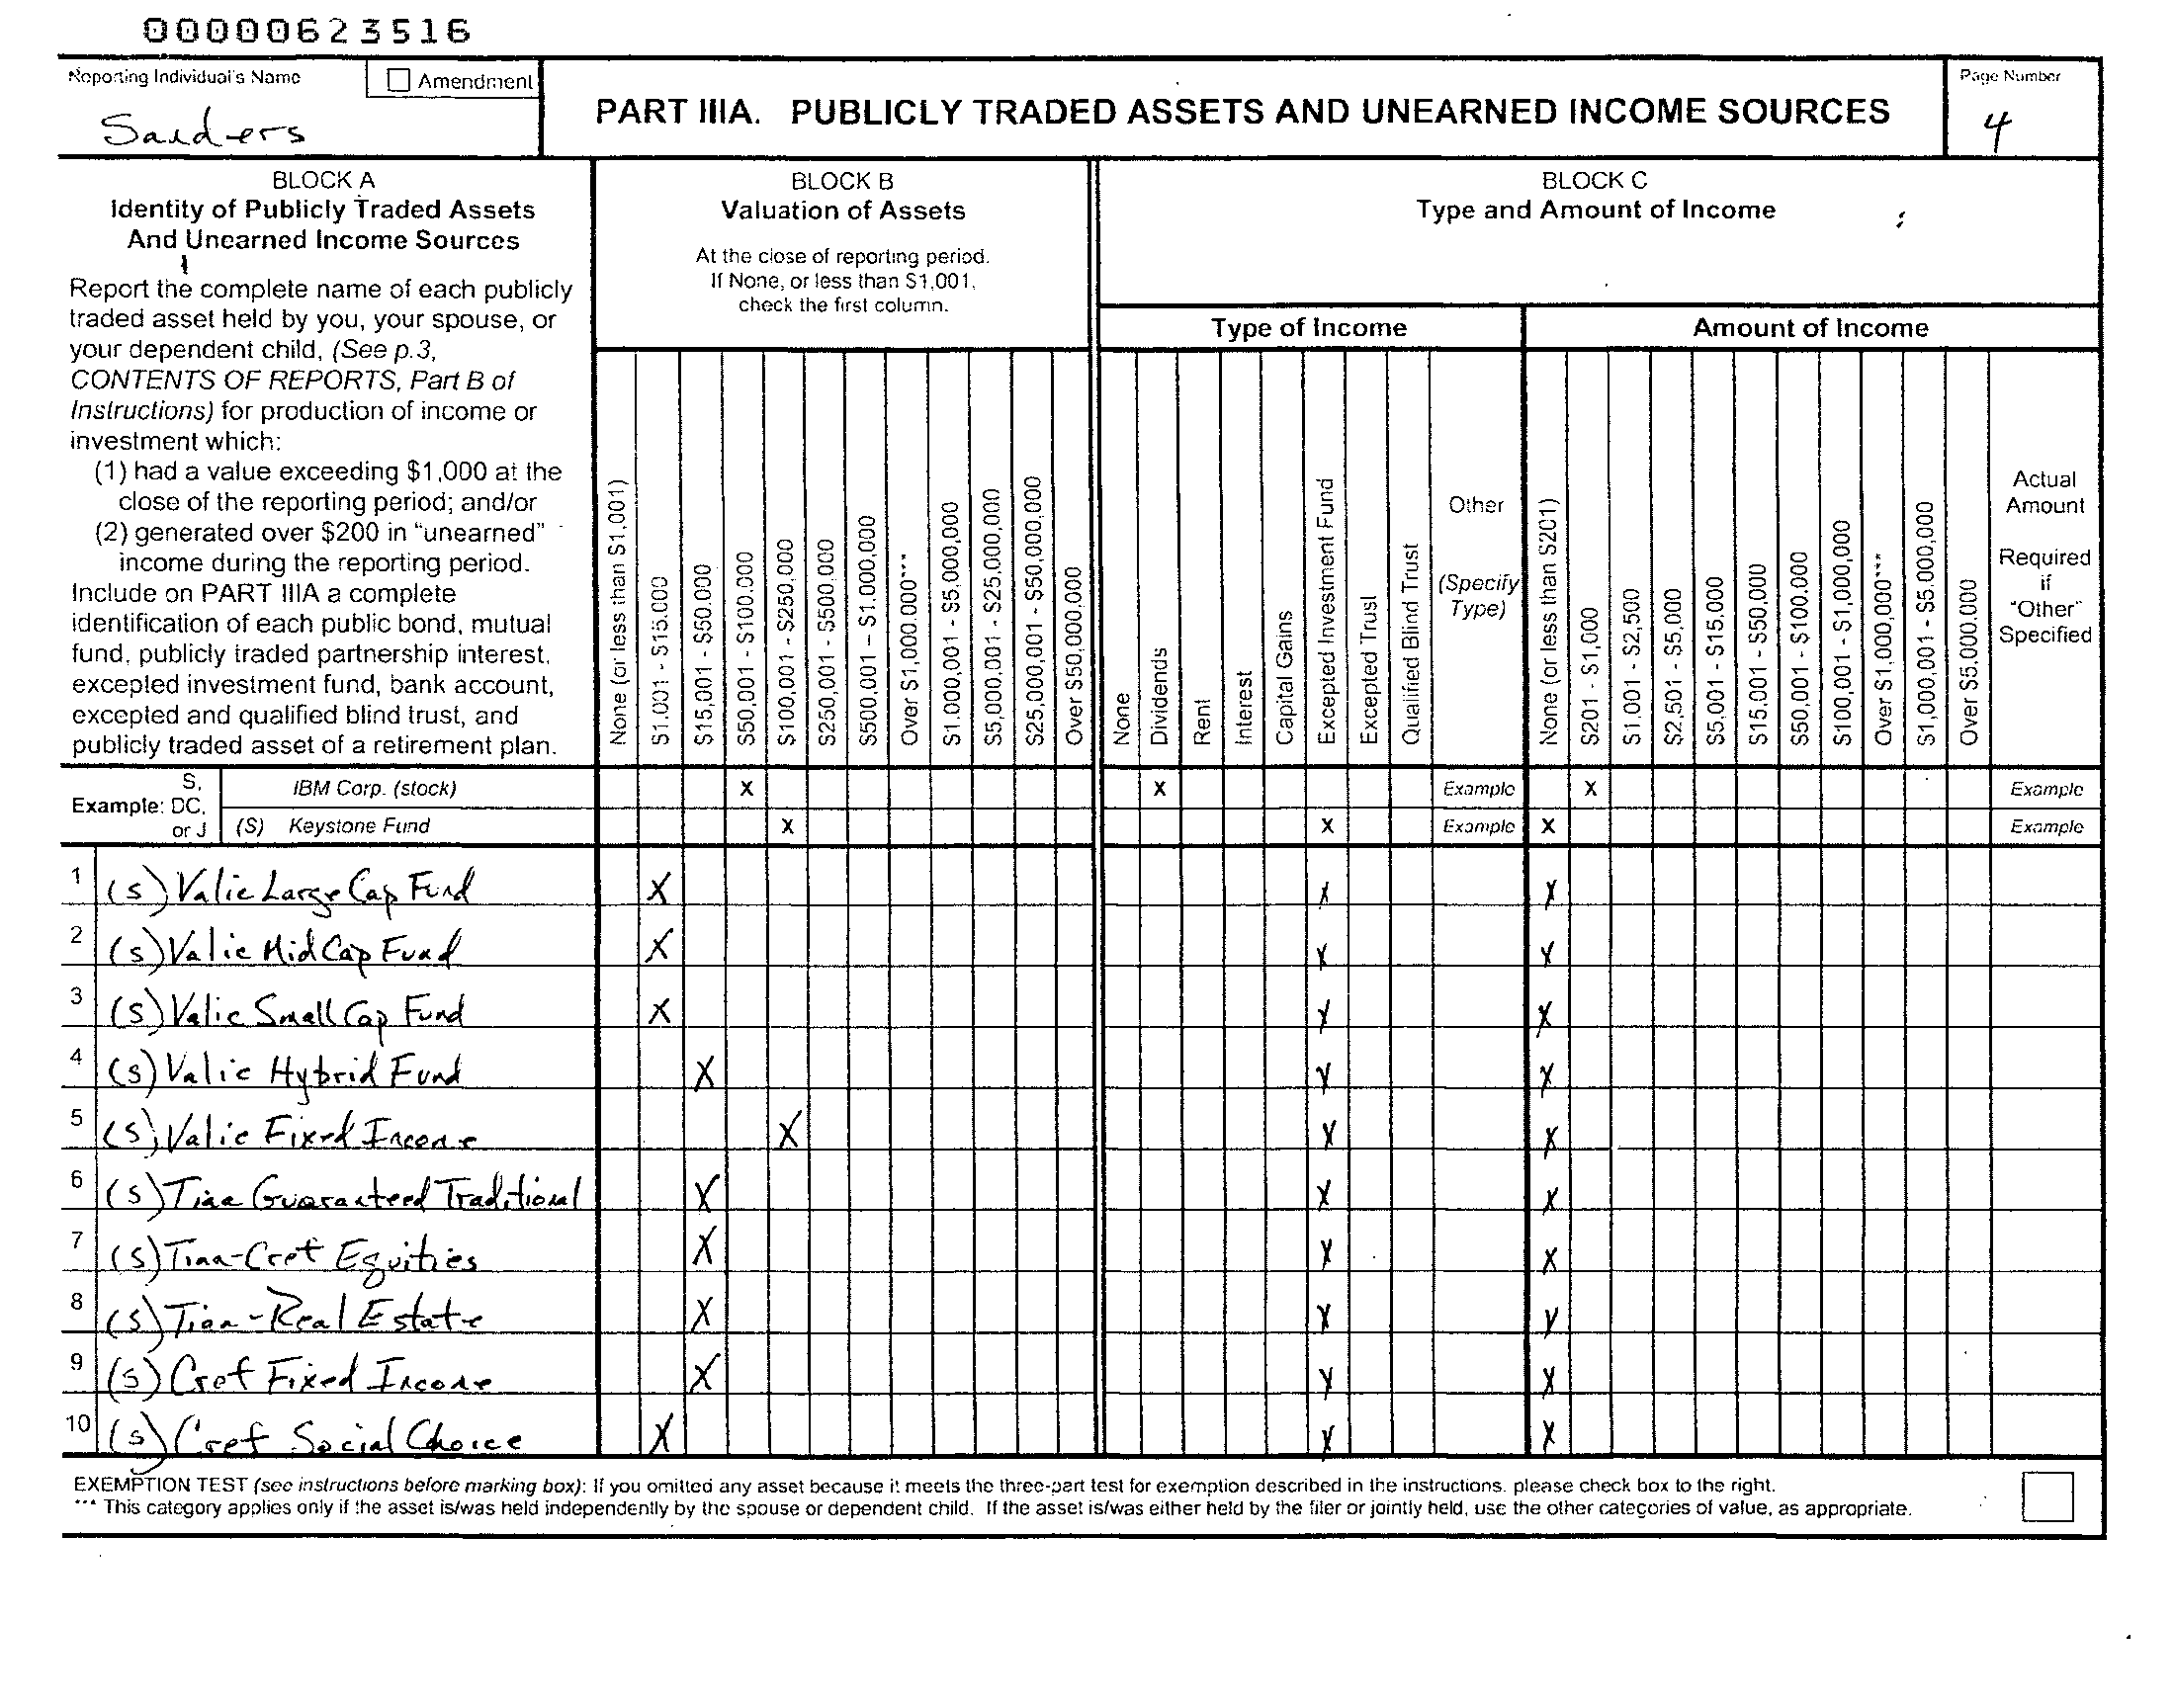 00000623516
Reporting Individual's Name
Amendment
Sanders
PART IIIA. PUBLICLY TRADED ASSETS AND UNEARNED INCOME SOURCES
Page Number
4
BLOCK A
Identity of Publicly Traded Assets
And Unearned Income Sources
Report the complete name of each publicly
traded asset held by you, your spouse, or
your dependent child, (See p.3,
CONTENTS OF REPORTS, Part B of
Instructions) for production of income or
investment which:
(1) had a value exceeding $1,000 at the
close of the reporting period; and/or
(2) generated over $200 in "unearned"
income during the reporting period.
Include on PART IIIA a complete
identification of each public bond, mutual
fund, publicly traded partnership interest,
excepted investment fund, bank account,
excepted and qualified blind trust, and
publicly traded asset of a retirement plan.
BLOCK B
Valuation of Assets
At the close of reporting period.
If None, or less than $1,001,
check the first column.
None (or less than $1,001)
$1,001 - $15,000
$15,001 - $50,000
$50,001 - $100,000
$100,001 - $250,000
$250,001 - $500,000
$500,001 – $1,000,000
Over $1,000,000***
$1,000,001 - $5,000,000
$5,000,001 - $25,000,000
$25,000,001 - $50,000,000
Over $50,000,000
BLOCK C
Type and Amount of Income
Type of Income
None
Dividends
Rent
Interest
Capital Gains
Excepted Investment Fund
Excepted Trust
Qualified Blind Trust
Other
(Specify
Type)
Amount of Income
None (or less than $201)
$201 - $1,000
$1,001 - $2,500
$2,501 - $5,000
$5,001 - $15,000
$15,001 - $50,000
$50,001 - $100,000
$100,001 - $1,000,000
Over $1,000,000***
$1,000,001 - $5,000,000
Over $5,000,000
Actual
Amount
Required
if
"Other"
Specified
Example: S, DC, or J
IBM Corp. (stock) X X Example X Example
(S) Keystone Fund X X Example X Example
1 (S) Valic Large Cap Fund X X X
2 (S) Valic Mid Cap Fund X X X
3 (S) Valic Small Cap Fund X X X
4 (S) Valic Hybrid Fund X X X
5 (S) Valic Fixed Income X X X
6 (S) Tiaa Guaranteed Traditional X X X
7 (S) Tiaa-Cref Equities X X X
8 (S) Tiaa-Real Estate X X X
9 (S) Cref Fixed Income X X X
10 (S) Cref Social Choice X X X
EXEMPTION TEST (see instructions before marking box): If you omitted any asset because it meets the three-part test for exemption described in the instructions, please check box to the right.
*** This category applies only if the asset is/was held independently by the spouse or dependent child. If the asset is/was either held by the filer or jointly held, use the other categories of value, as appropriate.